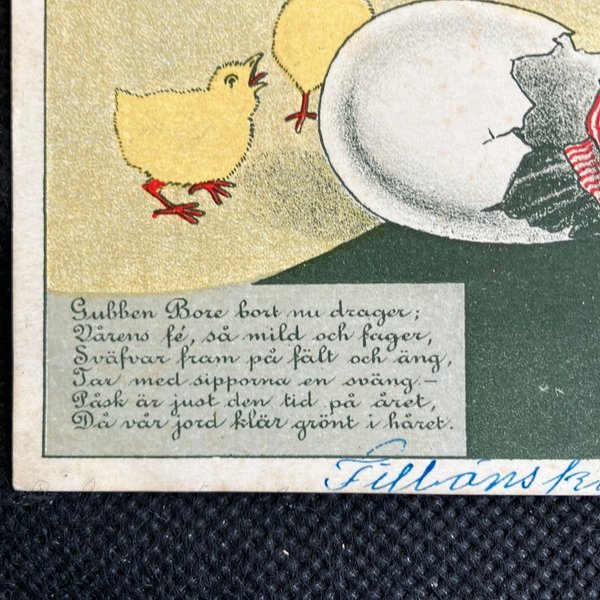 Gubben Bore bort nu drager;
Vårens fé, så mild och fager,
Sväfvar fram på fält och äng,
Tar med sipporna en sväng.—
Påsk är just den tid på året,
Då vår jord klär grönt i håret.